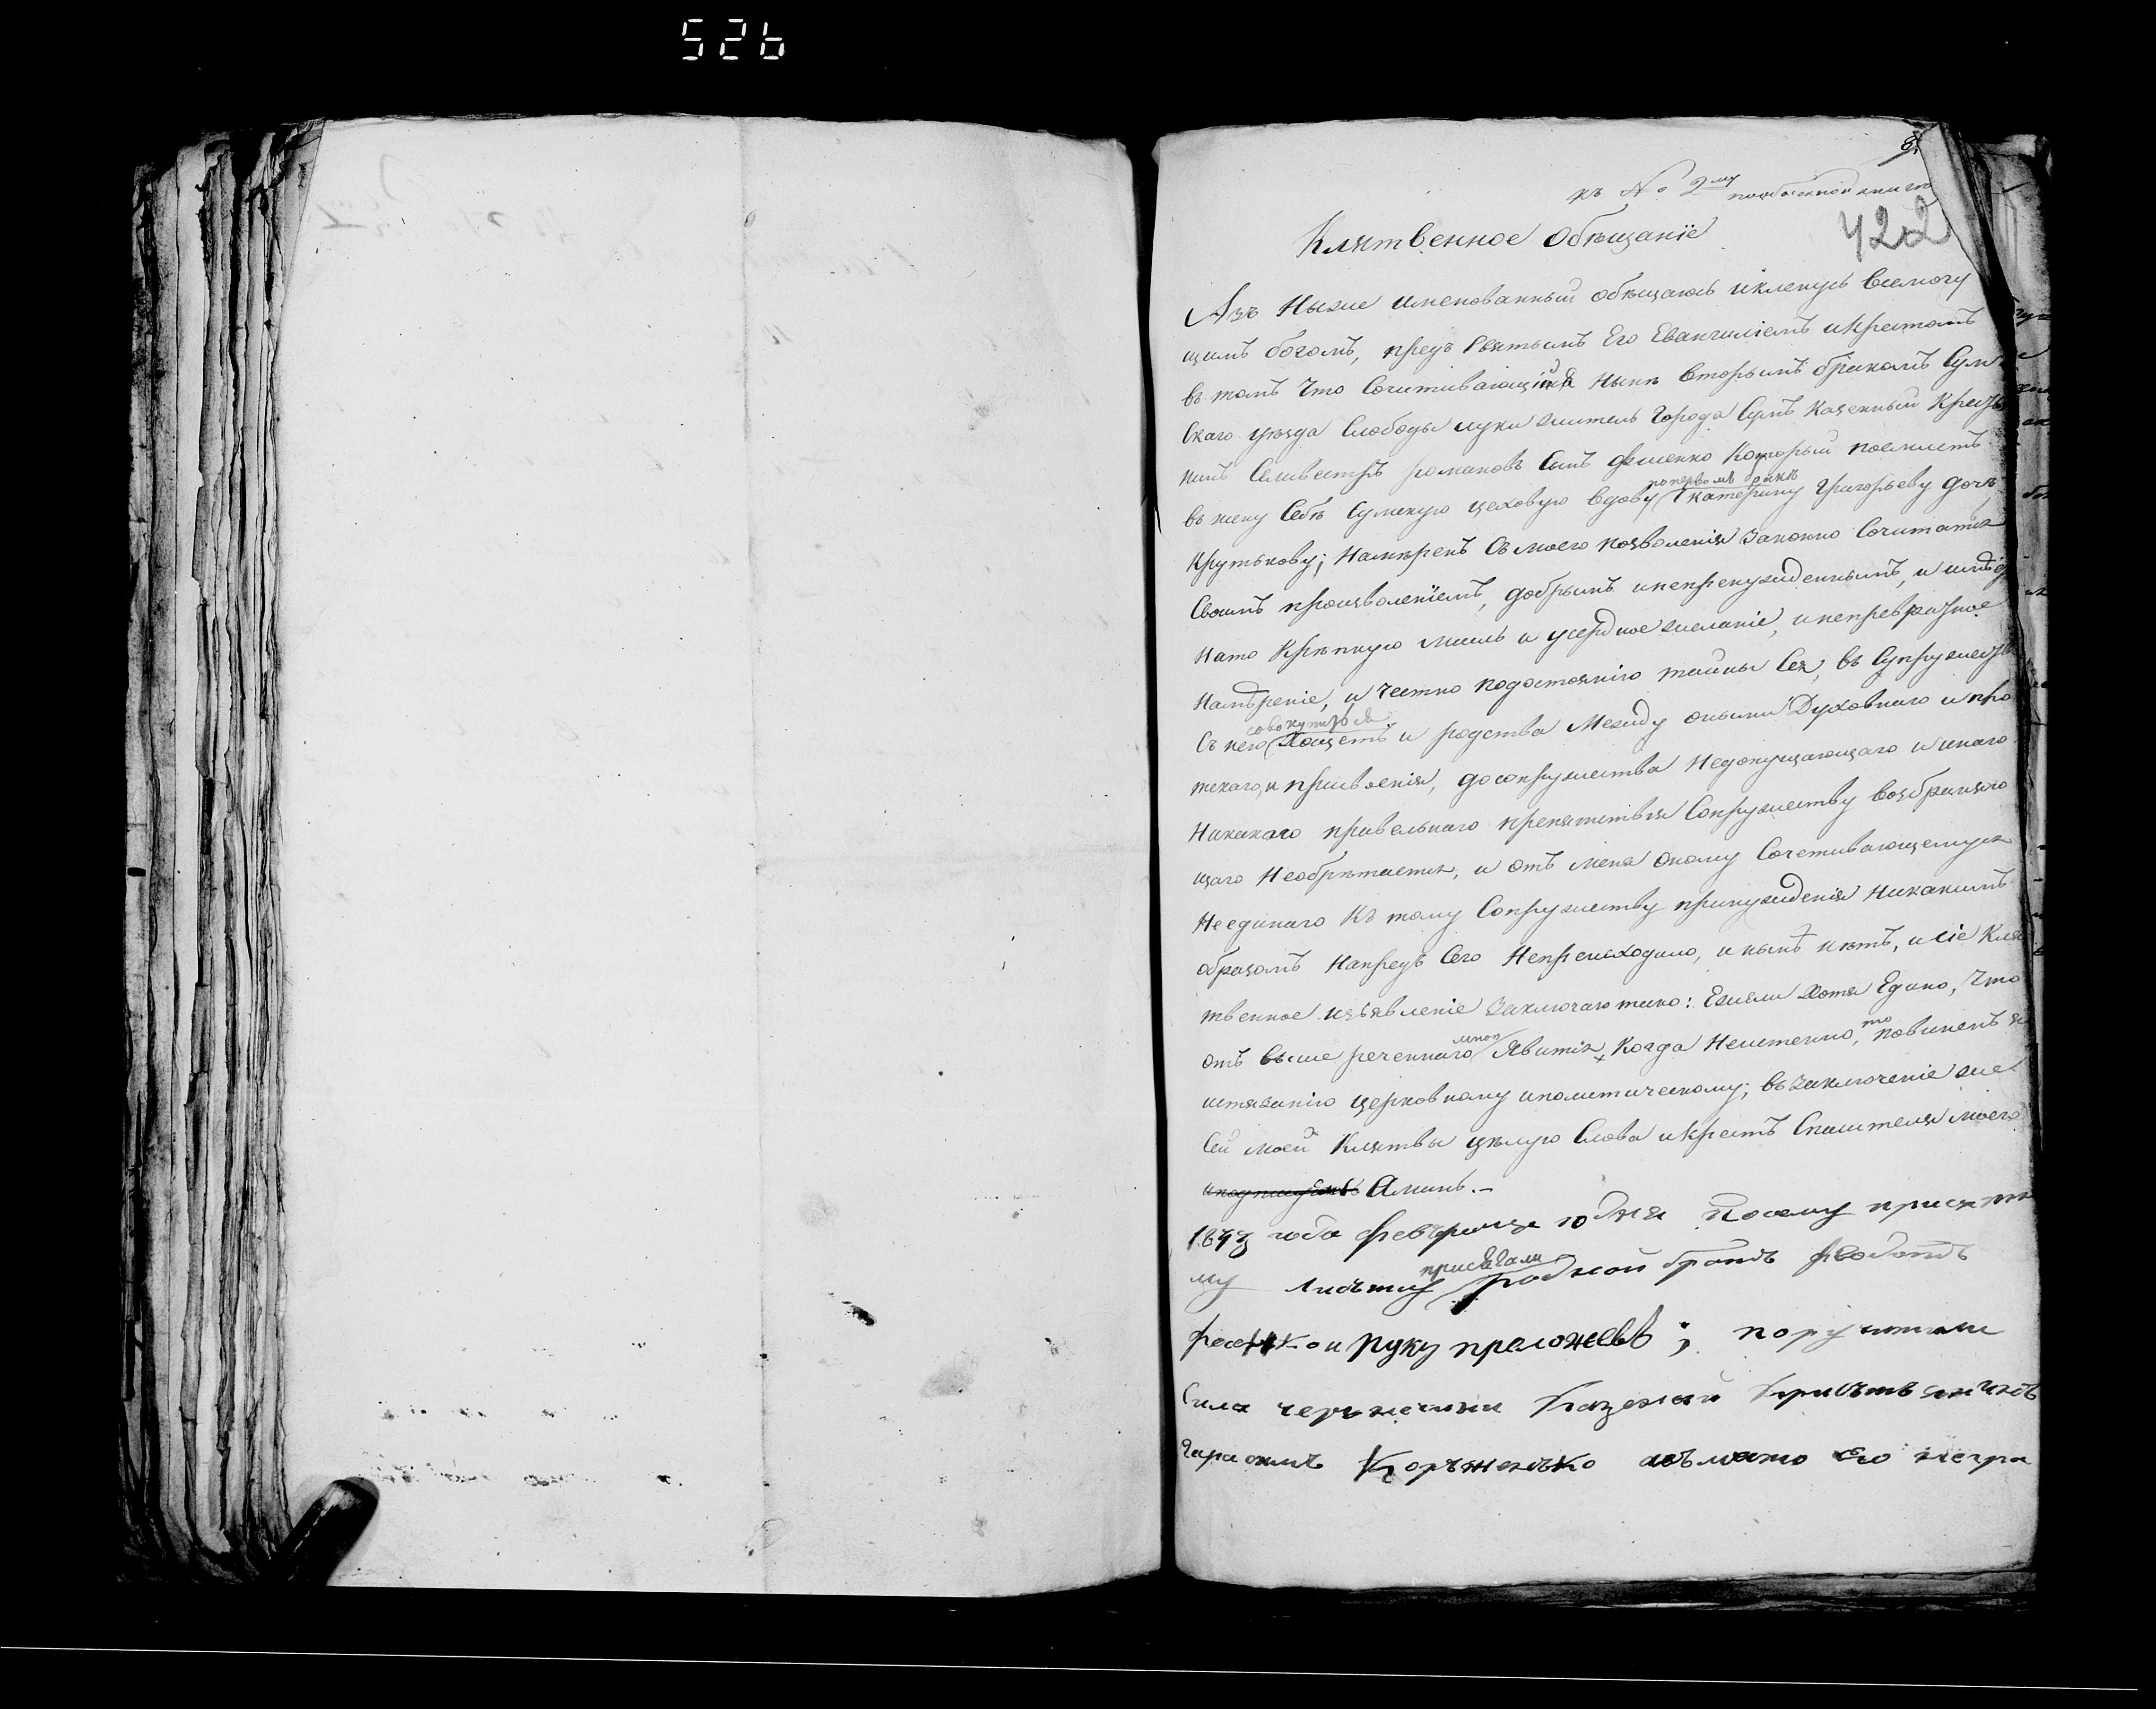 526
къ № 2му
422
Клятвенное Обѣщаніе
Азъ Ниже именованный обѣщаюсь и кленусь Всемогу
щимъ богомъ, предъ Святымъ Его Евангиліемъ и Крестомъ
въ томъ Что Сочитивающійся Нынѣ вторымъ бракомъ Сум
скаго уѣзда Слободы луки житель Города Сумъ Казенный Крестья
нинъ Селивестръ романовъ Сынъ Фесенко Который поемлетъ
по первомъ бракѣ
въ жену Себѣ Сумскую цеховую вдову Екатерину Григорьеву дочь
Крутькову; Намѣренъ Съ моего позволенія Законно Сочитатися
Своимъ произволеніемъ, добрымъ и непренужденнымъ, и имѣя
На то Крѣпкую мысль и усердное желаніе, и непревратное
Намѣреніе, и честно по достоянію тайны Сея, въ Супружест
совокупитьСя
Съ нею Хощетъ и родства Между оными Духовнаго и пло
тскаго, и присвоенія, до сопружества Недопущающаго и инаго
Никакаго правельнаго препятствія Сопружеству возбраняю
щаго Необрѣтается, и отъ меня оному Сочетивающемуся
Не единаго Къ тому Сопружеству принужденія Никакимъ
образомъ Напредъ Сего Непреисходило, и нынѣ нѣтъ, и Сіе Кля
твенное изъявленіе Заключаю тако: Ежели Хотя Едино, Что
мною то
отъ выше реченнаго Явится, Когда Неистенно, повиненъ я
истязанію церковному и политическому; въ Заключеніе же
Сей моей Клятвы цѣлую Слова и Крестъ Спасителя моего
Аминь. –
184 года Февраля 10 дня Посему присяжно
присягали
му листу родной братъ Федотъ
Фесенко и руку преложелъ; поручители
Сила казеный
Коръженъко